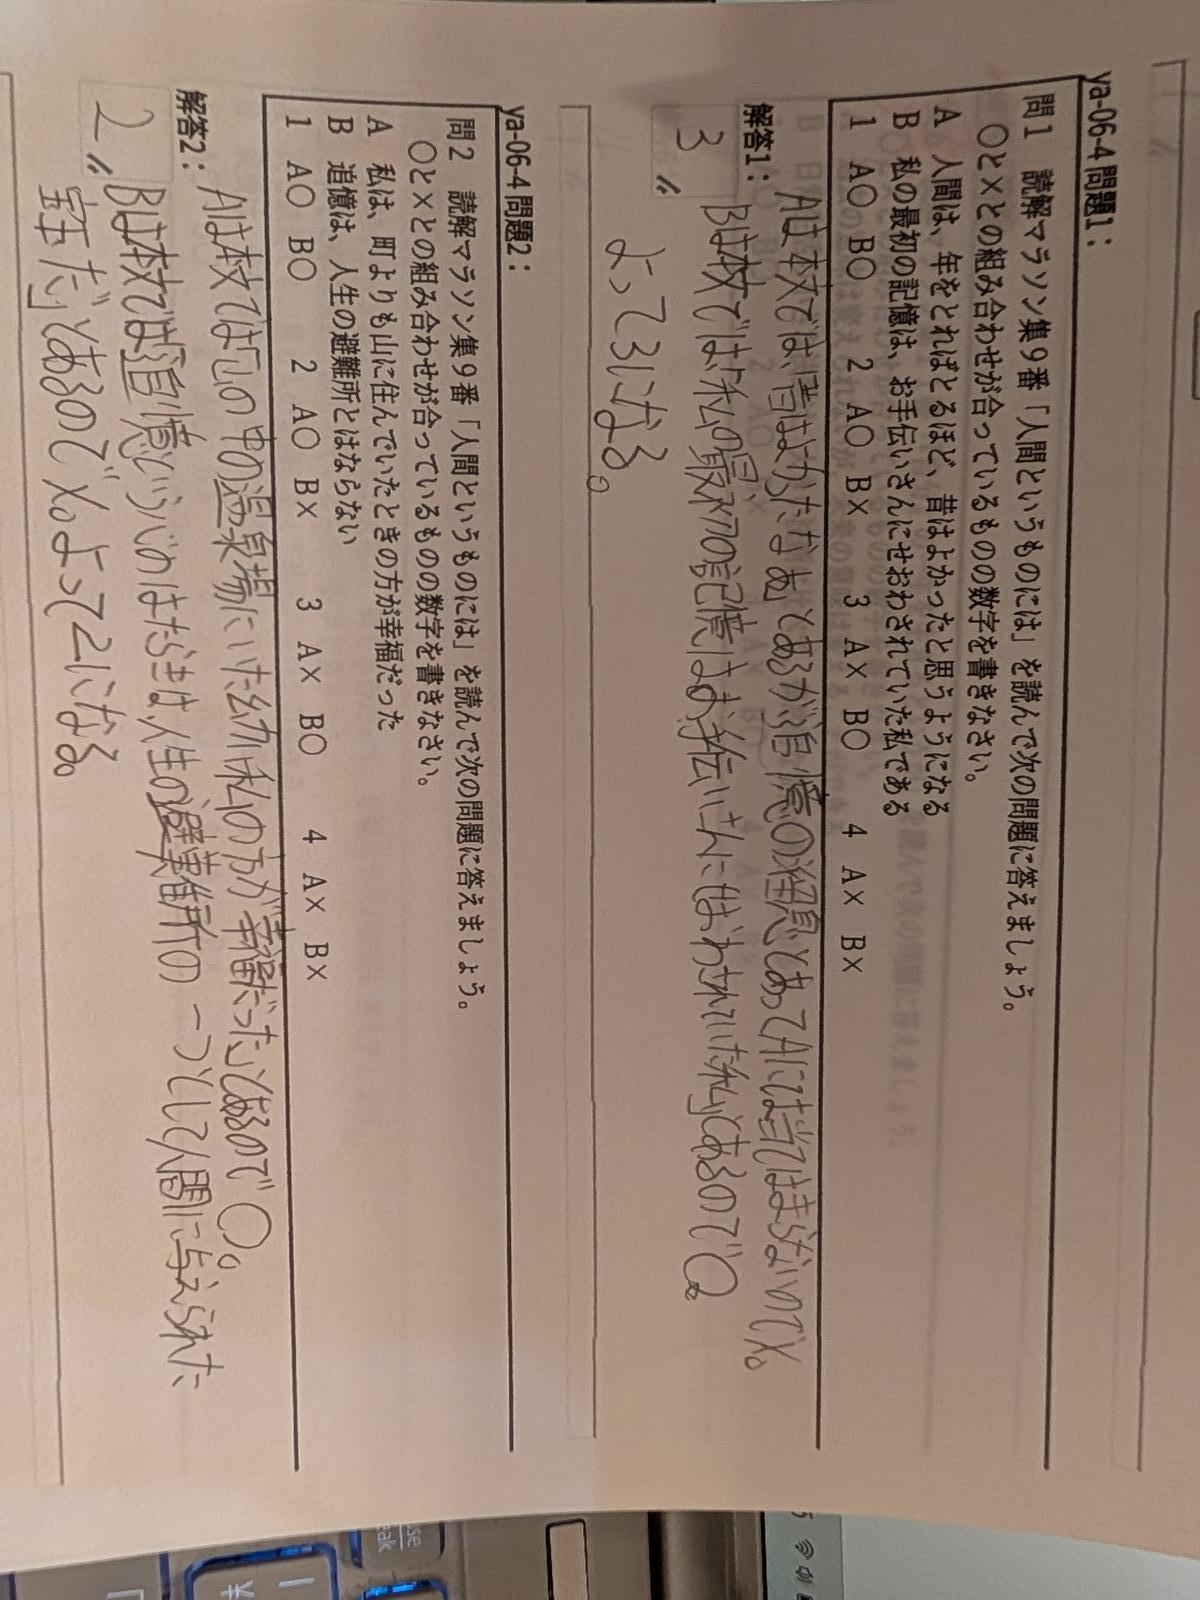 ya-06-4 問題1：
問1　読解マラソン集9番「人間というものには」を読んで次の問題に答えましょう。
○と×との組み合わせが合っているものの数字を書きなさい。
A　人間は、年をとればとるほど、昔はよかったと思うようになる
B　私の最初の記憶は、お手伝いさんにせおわされていた私である
1　A○　B○　2　A○　B×　3　A×　B○　4　A×　B×
解答1：
3
Aは本文では、「昔はよかったなあ」とあるが、追憶の
とあってAには当てはまらないので×。
Bは本文では「私の最初の記憶はお手伝いさんにせおわされていた私」とあるので○。
よって3になる。
ya-06-4 問題2：
問2　読解マラソン集9番「人間というものには」を読んで次の問題に答えましょう。
○と×との組み合わせが合っているものの数字を書きなさい。
A　私は、町よりも山に住んでいたときの方が幸福だった
B　追憶は、人生の避難所とはならない
1　A○　B○　2　A○　B×　3　A×　B○　4　A×　B×
解答2：
2
Aは本文では「山の中の温泉場にいた幼い私の方が幸福だった」とあるので○。
Bは本文では「追憶という心のはたらきは人生の避難所の一つとして人間に与えられた
宝だ」とあるので×。よって2になる。